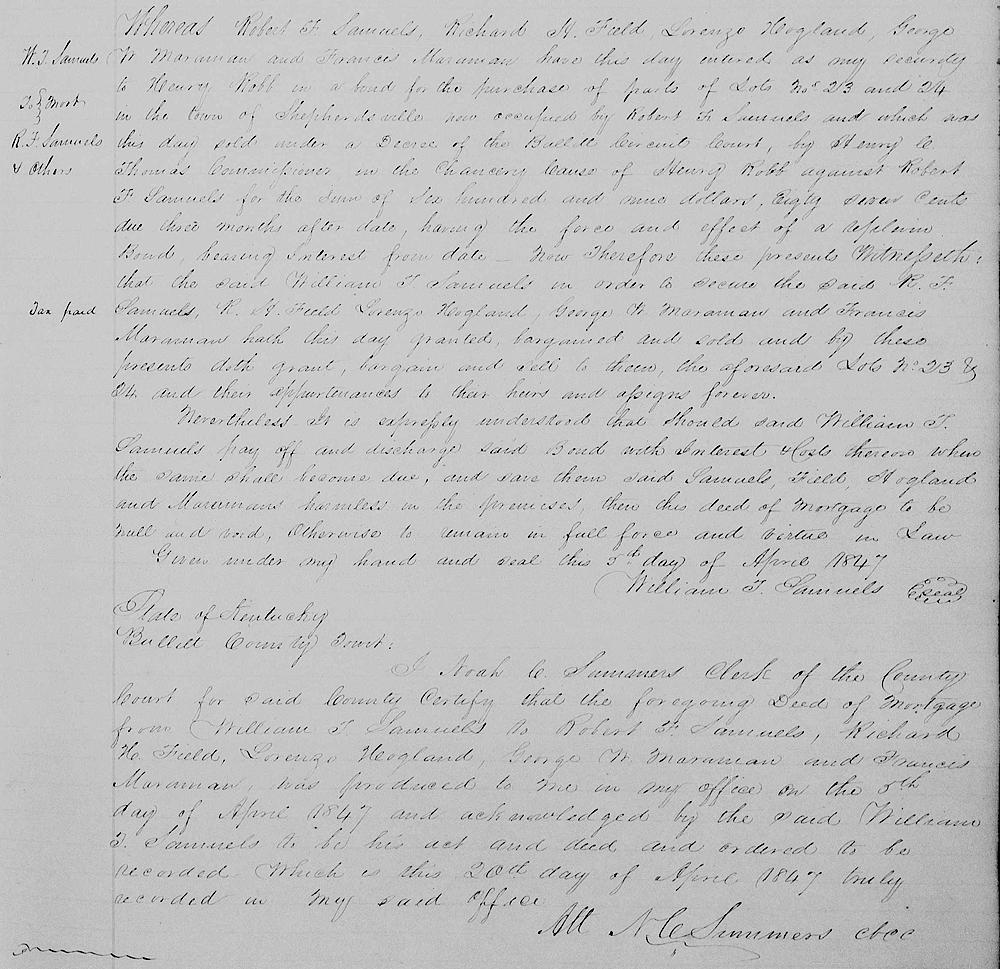 Whereas Robert F. Samuels, Richard H. Field, Lorenzo Hogland, George
W. T. Samuels
W Maraman and Francis Maraman have this day entered as my security
to Henry Robb in a bond for the purchase of parts of Lots Nos 23 and 24
To } Mort
in the town of Shepherdsville now occupied by Robert F Samuels and which was
R. F. Samuels
this day sold under a Decree of the Bullitt Circuit Court, by Henry C
& Others
Thomas Commissioner in the Chancery Cause of Henry Robb against Robert
F Samuels for the sum of Six hundred and nine dollars, Eighty seven Cents
due three months after date, having the force and effect of a replevin
Bond, bearing Interest from date — Now Therefore these presents Witnesseth:
that the said William T Samuels in order to secure the said R. F.
Tax paid
Samuels, R. H. Field Lorenzo Hogland, George W. Maraman and Francis
Maraman hath this day granted, bargained and sold and by these
presents doth grant, bargain and sell to them, the aforesaid Lots No 23 &
24 and their appurtenances to their heirs and assigns forever.
Nevertheless It is expressly understood that should said William T.
Samuels pay off and discharge said Bond with Interest & Costs thereon when
the same shall become due, and save them said Samuels, Field, Hogland
and Maramans harmless in the premises, then this deed of Mortgage to be
null and void, Otherwise to remain in full force and virtue in Law
Given under my hand and seal this 5th day of April 1847
William T. Samuels Seal
State of Kentucky
Bullitt County Court:
I Noah C. Summers Clerk of the County
Court for said County Certify that the foregoing Deed of Mortgage
from William T. Samuels to Robert F. Samuels, Richard
H. Field, Lorenzo Hogland, George W. Maraman and Francis
Maraman, was produced to me in my office on the 5th
day of April 1847 and acknowledged by the said William
T. Samuels to be his act and deed and ordered to be
recorded. Which is this 20th day of April 1847 truly
recorded in my said office
Att N. C. Summers cbcc